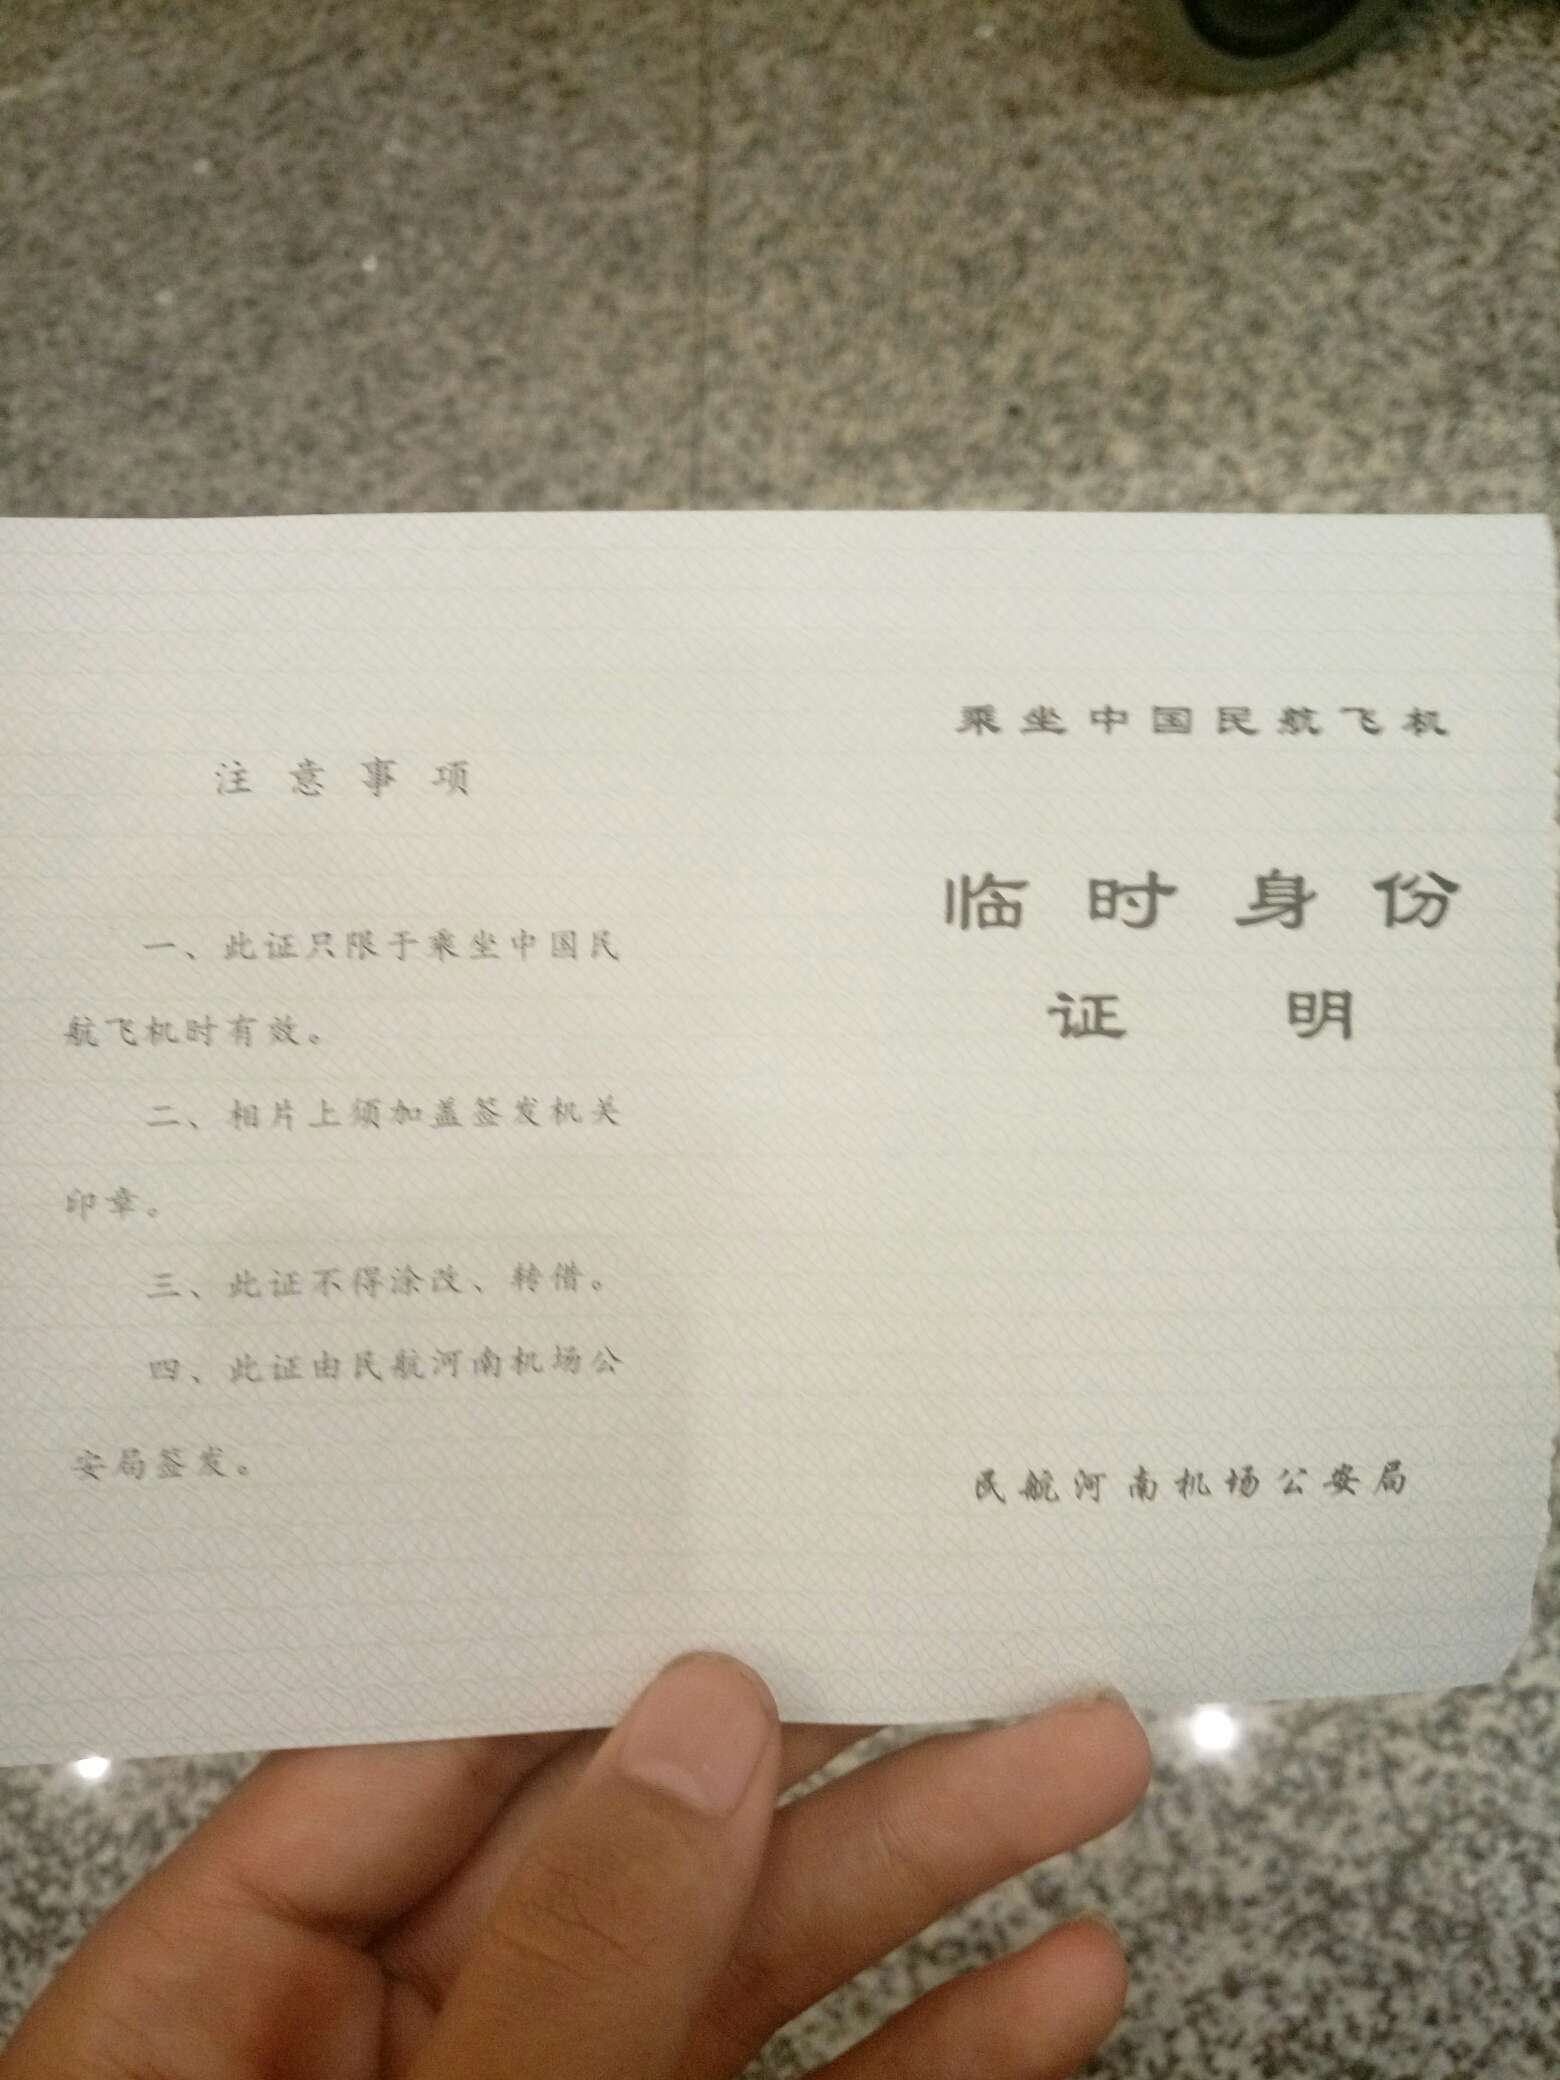 注意事项
一、此证只限于乘坐中国民
航飞机时有效。
二、相片上须加盖签发机关
印章。
三、此证不得涂改、转借。
四、此证由民航河南机场公
安局签发。
乘坐中国民航飞机
临时身份
证明
民航河南机场公安局